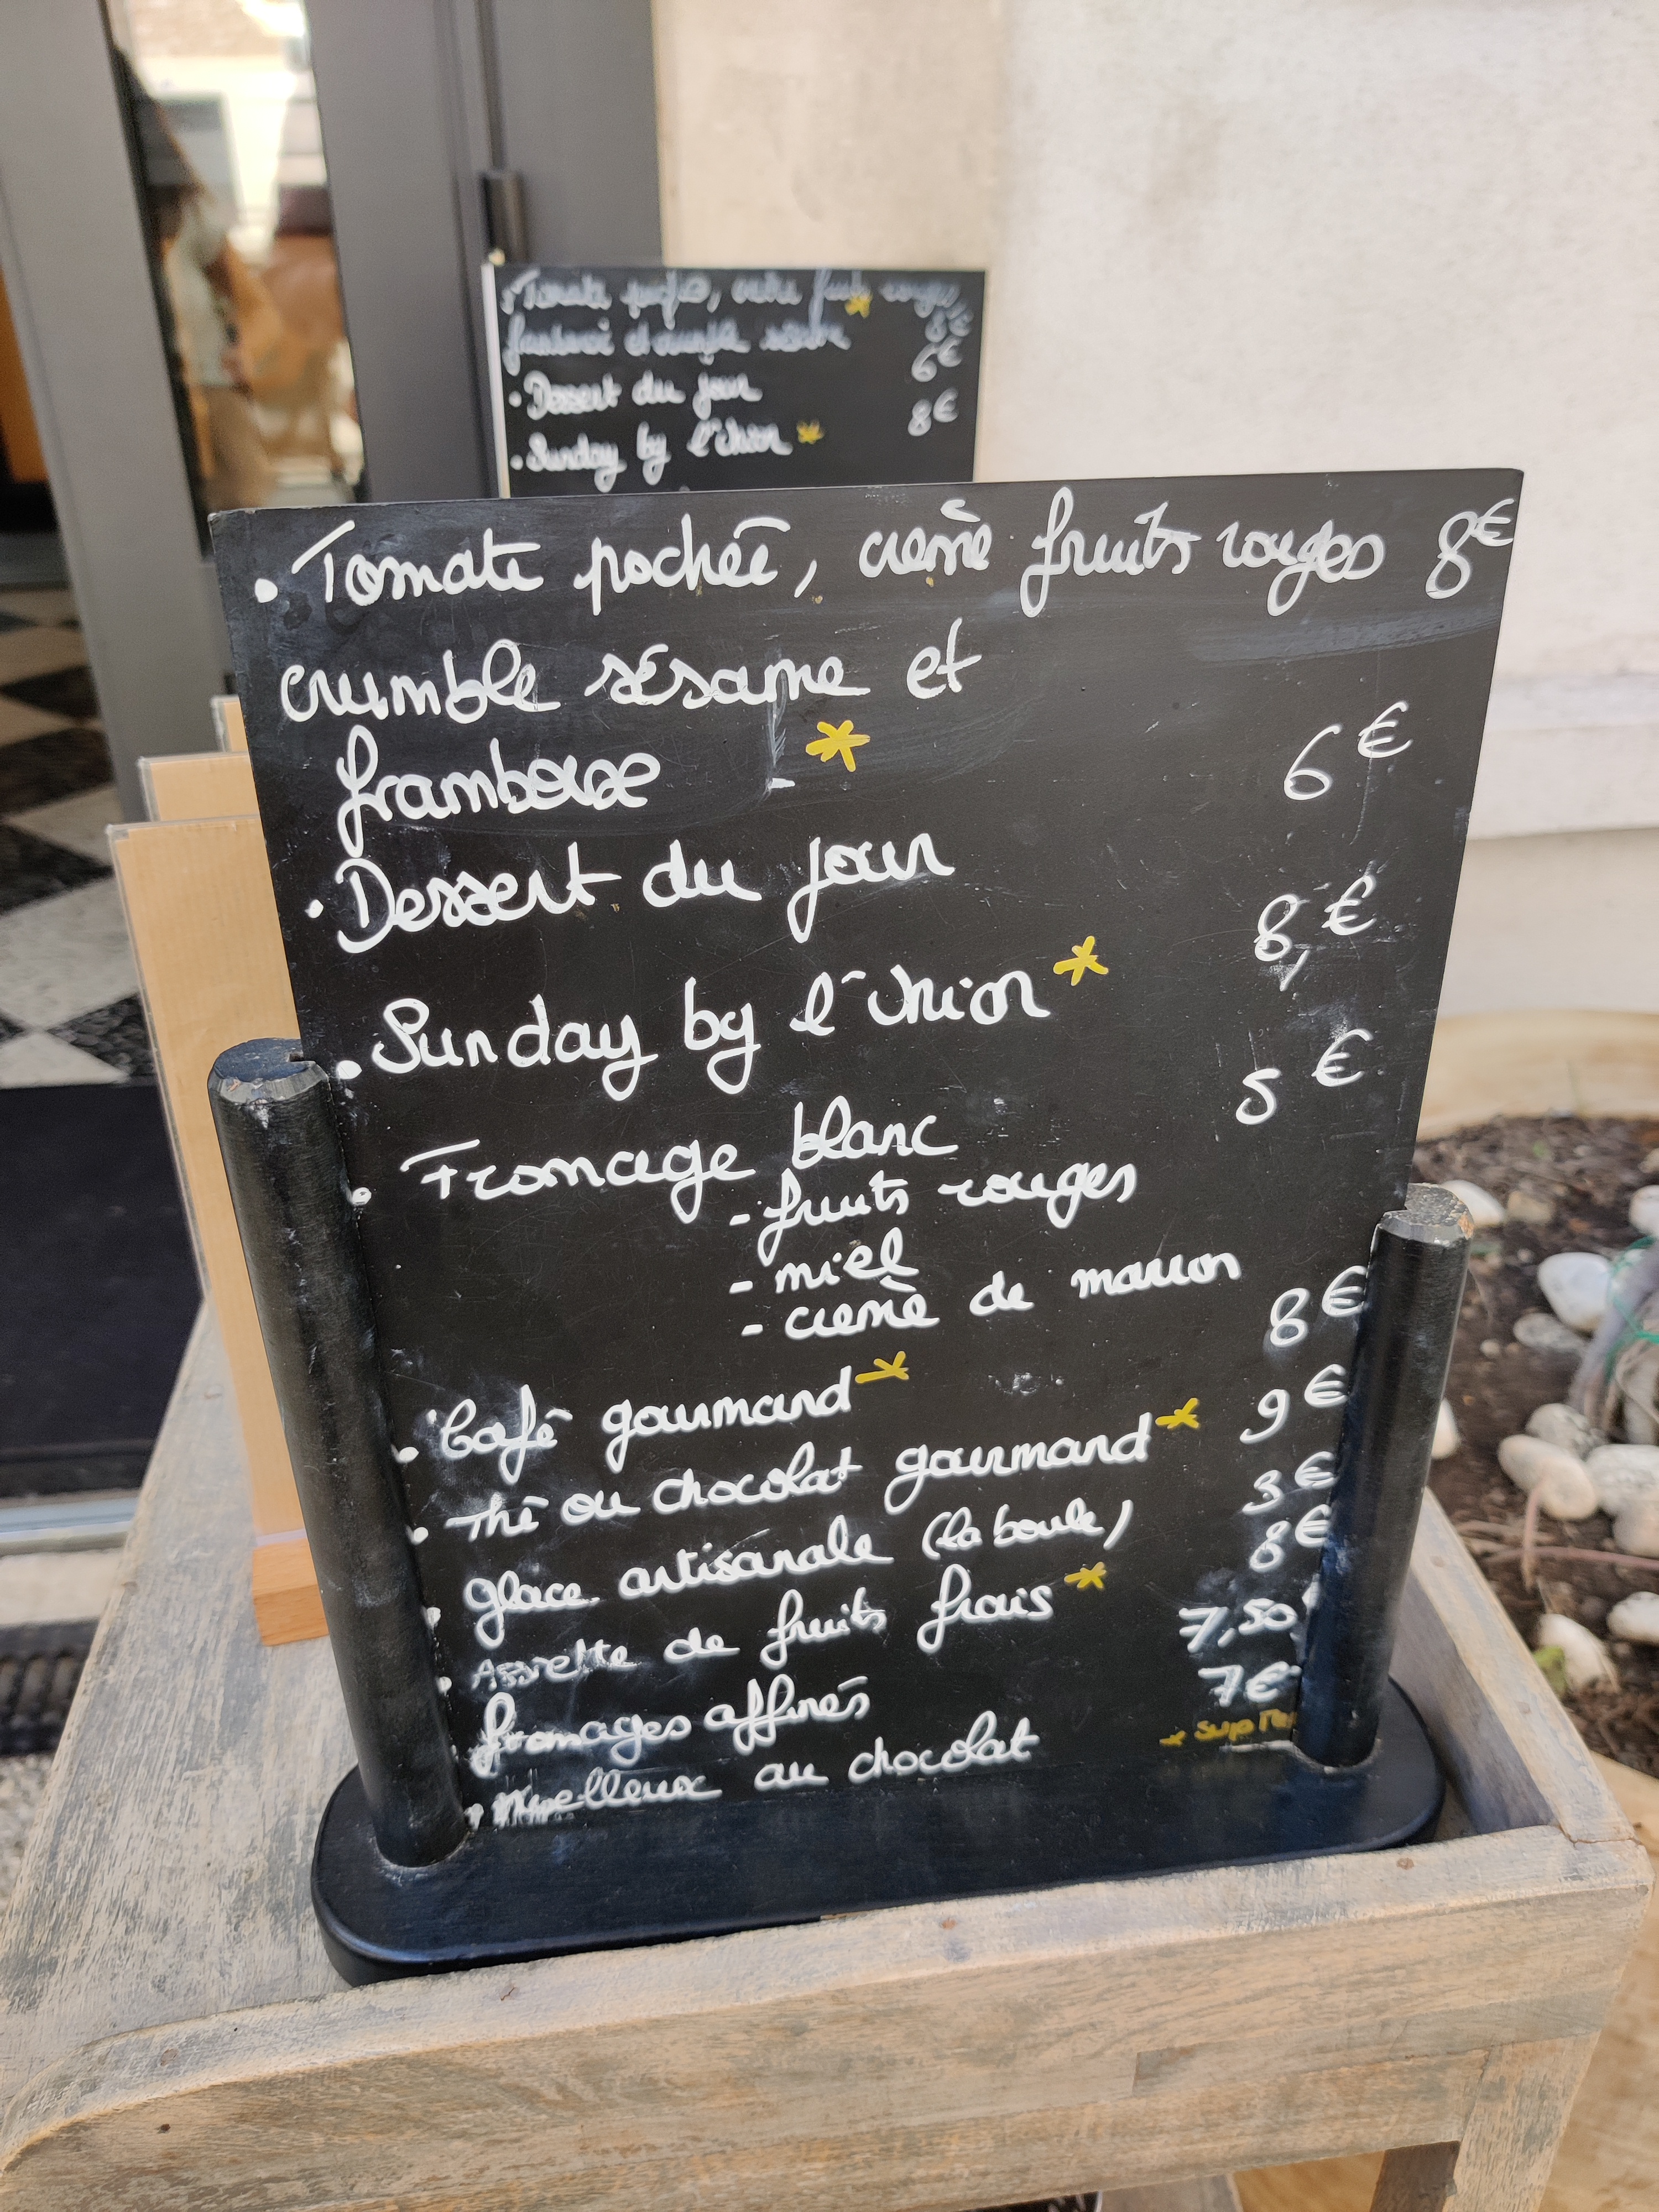 Tomate
8€
6€
• Dessert du jour
8€
• Sunday by l'Union *
• Tomate pochée, crème fruits rouges 8€
crumble sésame et
framboise - *
6€
• Dessert du jour
8,€
• Sunday by l'Union *
5€
• Fromage blanc
- fruits rouges
- miel
- crème de marron
8€
• Café gourmand *
9€
• Thé ou chocolat gourmand *
3€
• glace artisanale (la boule)
8€
• Assiette de fruits frais *
7,50
• fromages affinés
7€
• Moelleux au chocolat